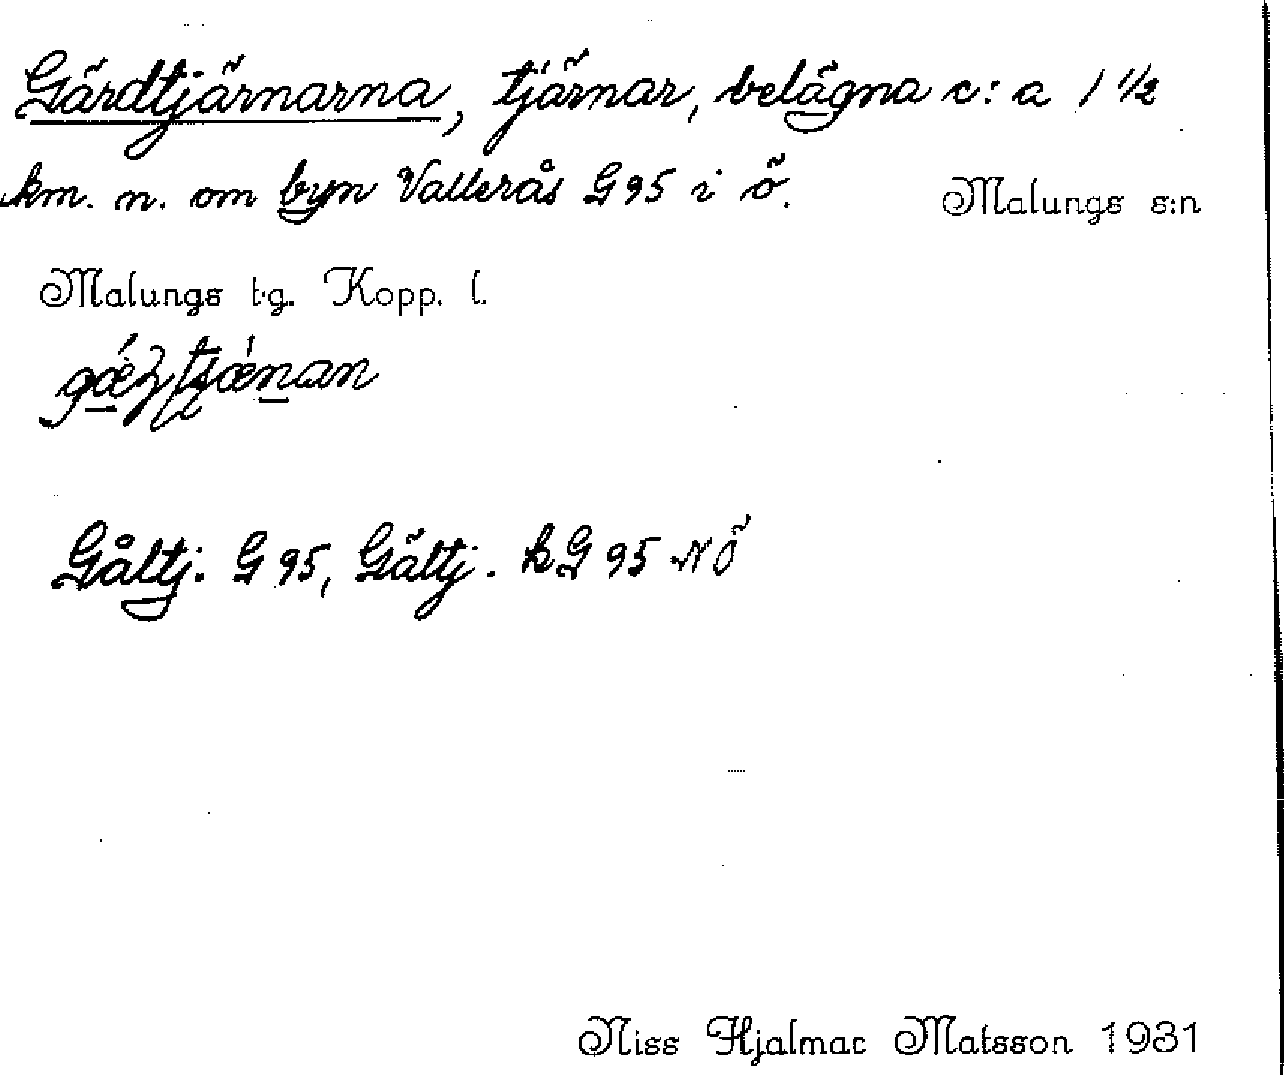 Gärdtjärnarna, tjärnar, belägna c:a 1 1/2
km. n. om byn Vallerås G 95 i ö.
Malungs s:n
Malungs t.g. Kopp. l.
Gåltj. G 95, Gältj. k G 95 NÖ
Niss Hjalmar Matsson 1931